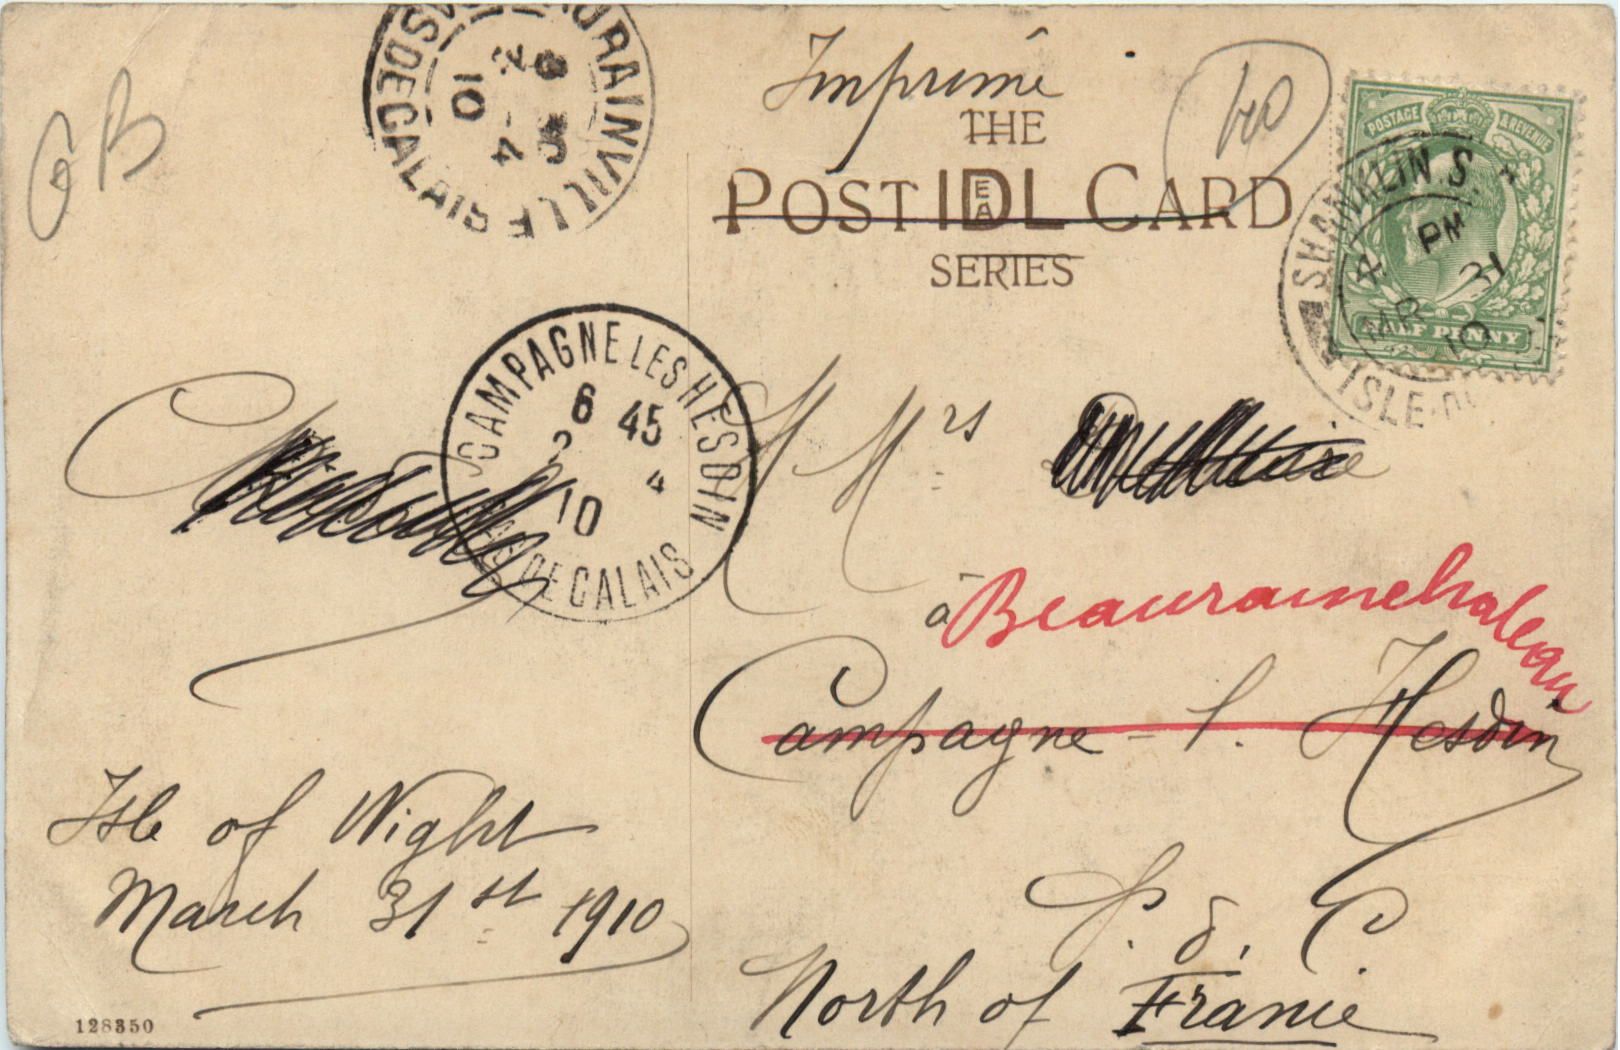 GB
BEAURAINVILLE
PAS DE CALAIS
10
4
Imprimé
40
THE
POST IDEAL CARD
SERIES
POSTAGE & REVENUE
HALF PENNY
SHANKLIN S.
4 PM
MR 31
10
ISLE-OF
CAMPAGNE LES HESDIN
6 45
2 4
10
PAS DE CALAIS
Mrs
à Beaurainchateau
Campagne - l. Hesdin
P. d. C.
North of France
Isle of Wight
March 31st 1910
128350